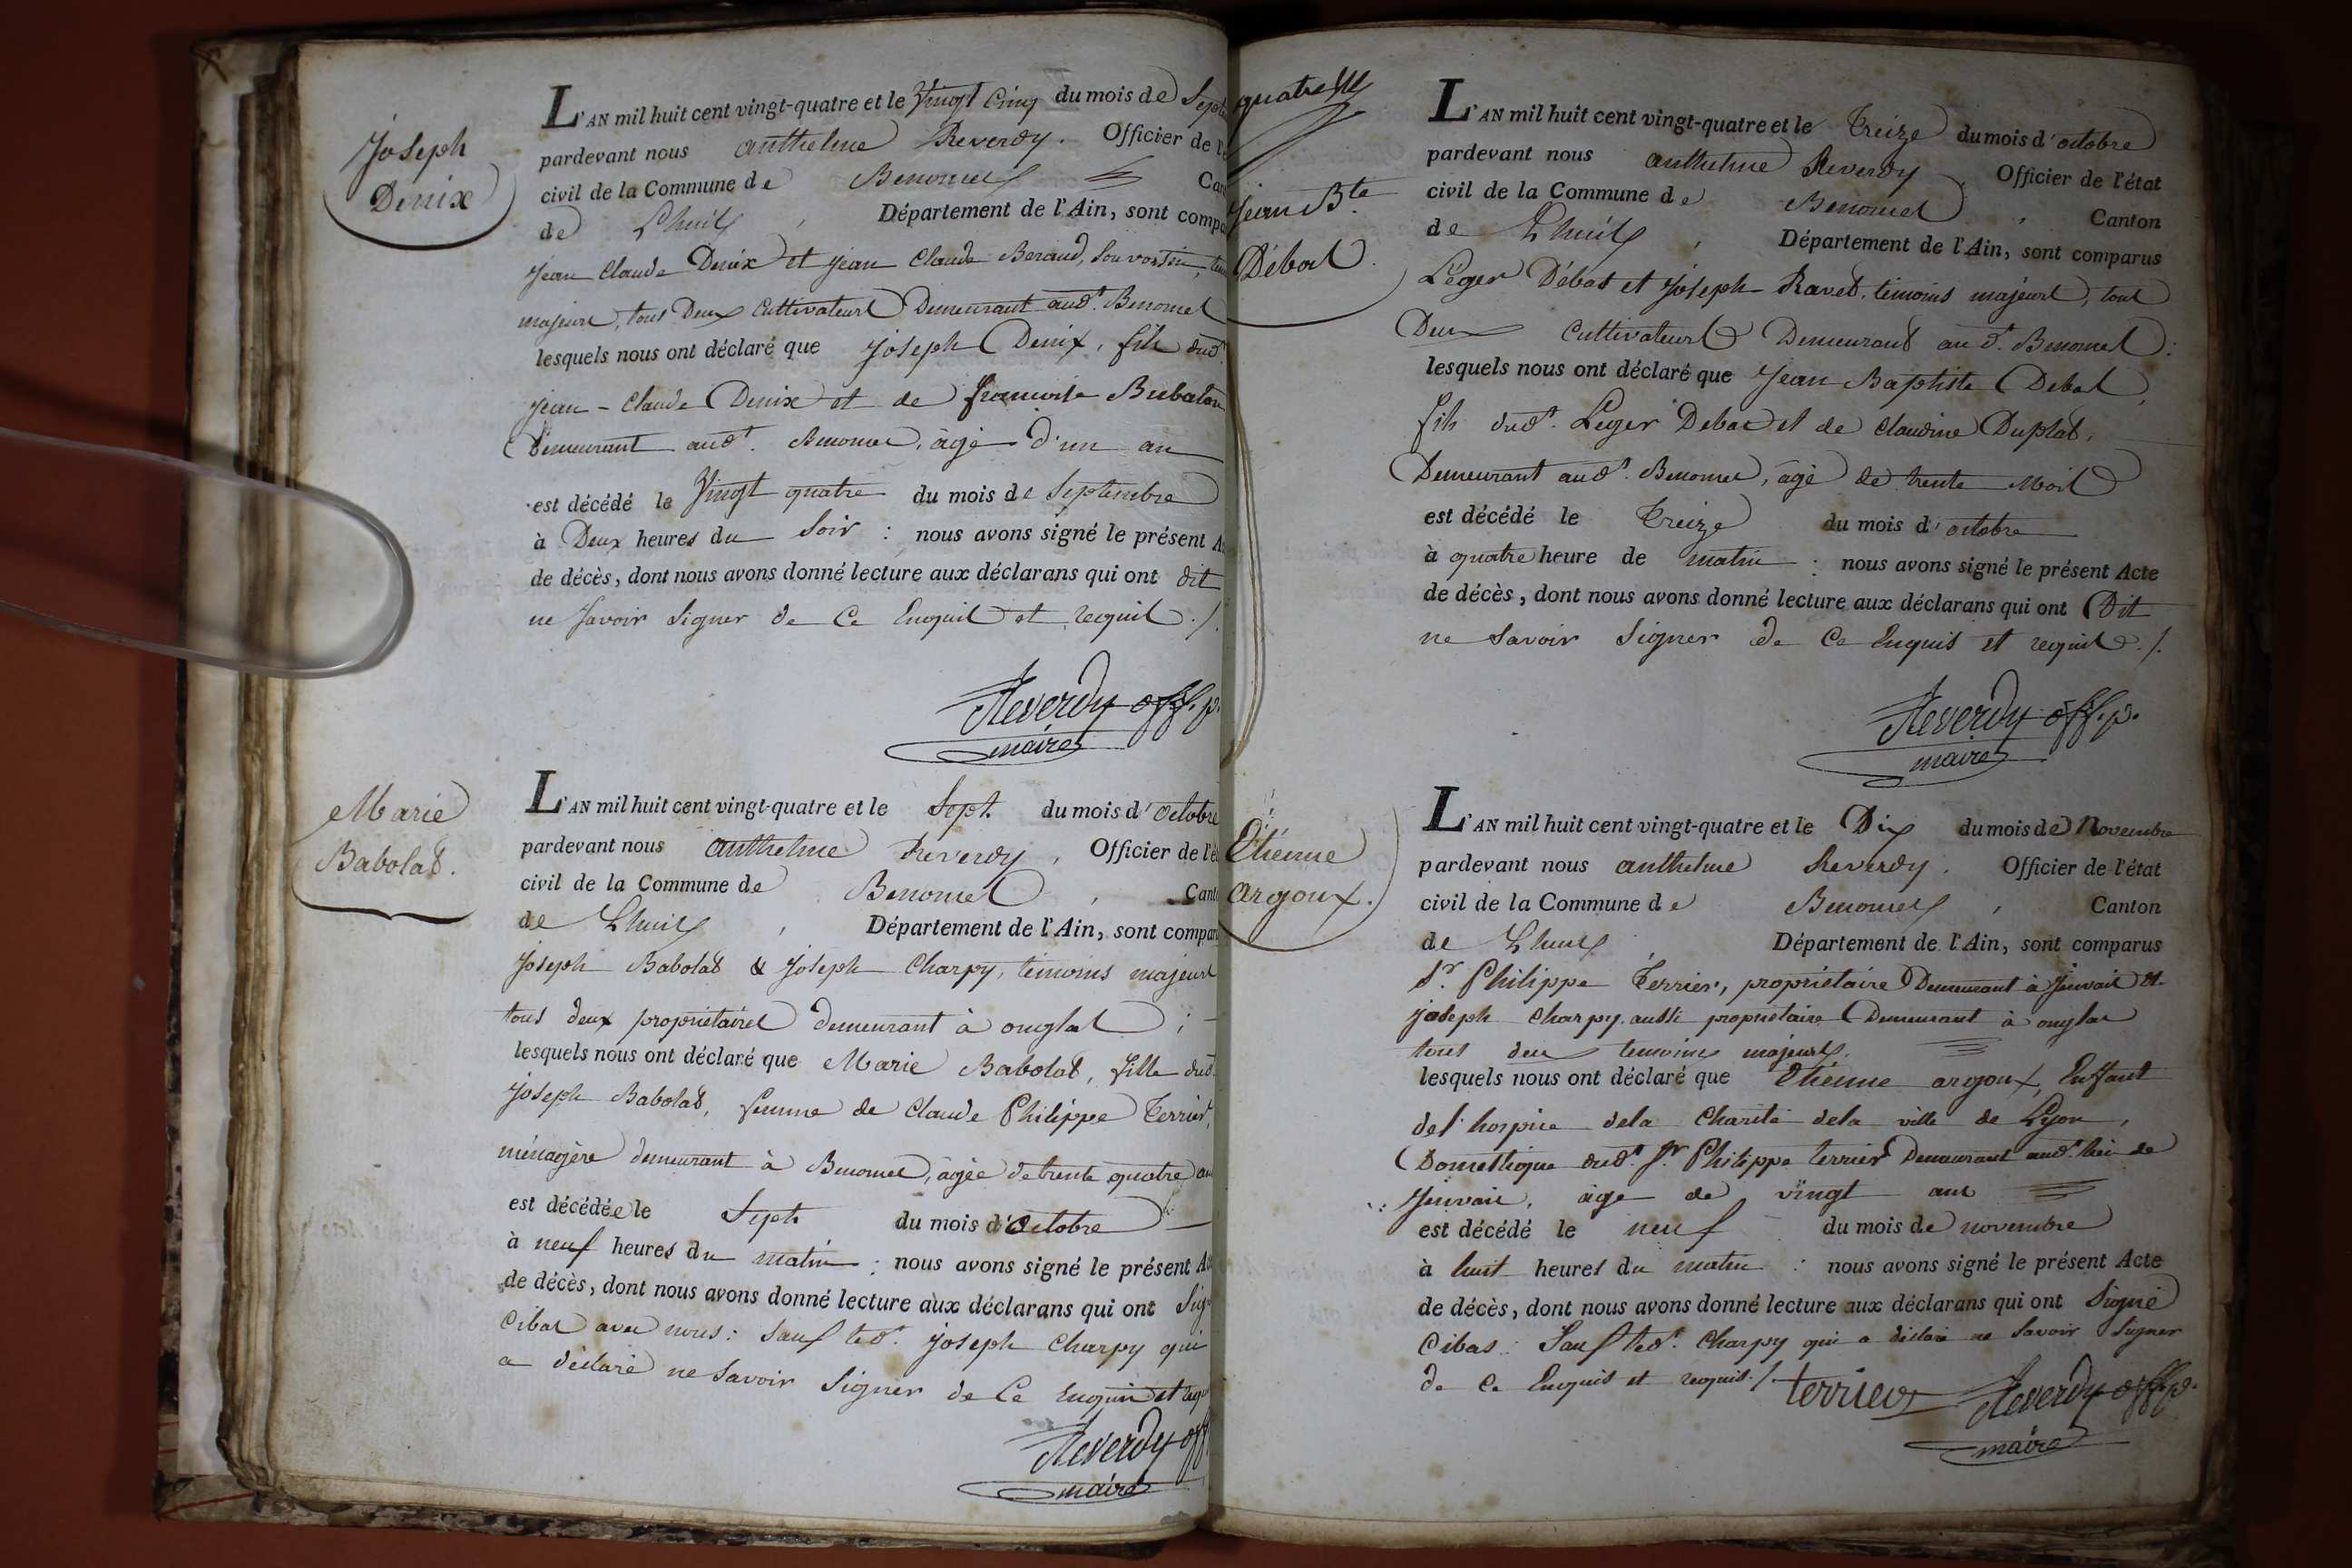 Joseph
Denix
L'AN mil huit cent vingt-quatre et le Vingt Cinq du mois de Sept
pardevant nous anthelme Reverdy. Officier de l'é
civil de la Commune de Benonces Can
de Lhuis, Département de l'Ain, sont compa
Jean Claude Denix et Jean Claude Beraud, Son voisin,
majeurs, tous Deux Cultivateurs Demeurant aud.t Benonces
lesquels nous ont déclaré que Joseph Denix, fils dud.t
Jean-Claude Denix et de francoise Bubaton
Demeurant aud.t Benonces, âgé d'un an
est décédé le Vingt quatre du mois de Septembre
à Deux heures du Soir : nous avons signé le présent A
de décès, dont nous avons donné lecture aux déclarans qui ont dit
ne Savoir Signer de Ce Enquis et requis ./.
Reverdy off. p.
maire
Marie
Babolat.
L'AN mil huit cent vingt-quatre et le Sept. du mois d'octobre
pardevant nous anthelme Reverdy, Officier de l'é
civil de la Commune de Benonces, Cant
de Lhuis, Département de l'Ain, sont compar
Joseph Babolat & Joseph Charpy, témoins majeurs
tous deux propriétaires demeurant à onglas ;
lesquels nous ont déclaré que Marie Babolat, fille dud.
Joseph Babolat, femme de Claude Philippe Terrier,
ménagère demeurant à Benonces, âgée de trente quatre an
est décédée le Sept. du mois d'Octobre
à neuf heures du matin : nous avons signé le présent Ac
de décès, dont nous avons donné lecture aux déclarans qui ont Sign
Cibas avec nous : Sauf led.t Joseph Charpy qui
a déclaré ne Savoir Signer de Ce Enquis et requ
Reverdy off.
maire
quatre
Jean B.te
Débat
L'AN mil huit cent vingt-quatre et le Treize du mois d'octobre
pardevant nous anthelme Reverdy, Officier de l'état
civil de la Commune de Benonces, Canton
de Lhuis, Département de l'Ain, sont comparus
Leger Débat et Joseph Ravet, témoins majeurs, tous
Deux Cultivateurs Demeurant au d.t Benonces :
lesquels nous ont déclaré que Jean Baptiste Debat,
fils dud.t Leger Debat et de Claudine Duplat,
Demeurant aud.t Benonces, âgé de trente Mois
est décédé le Treize du mois d'octobre
à quatre heure de matin : nous avons signé le présent Acte
de décès, dont nous avons donné lecture aux déclarans qui ont Dit
ne Savoir Signer de Ce Enquis et requis ./.
Reverdy off. p.
maire
Etienne
argoux.
L'AN mil huit cent vingt-quatre et le Dix du mois de Novembre
pardevant nous anthelme Reverdy, Officier de l'état
civil de la Commune de Benonces, Canton
de Lhuis, Département de l'Ain, sont comparus
S.r Philippe Terrier, propriétaire Demeurant à Jouvais et
Joseph Charpy aussi propriétaire Demeurant à onglas
tous deux temoins majeurs.
lesquels nous ont déclaré que Etienne argoux, Enffant
de l'hospice dela Charité dela ville de Lyon,
Domestique dud.t S.r Philippe terrier Demeurant aud.t lieu de
Jouvais, âge de vingt ans
est décédé le neuf du mois de novembre
à huit heures du matin : nous avons signé le présent Acte
de décès, dont nous avons donné lecture aux déclarans qui ont Signé
Cibas : Sauf led.t Charpy qui a déclaré ne Savoir Signer
de Ce Enquis et requis ./. terrier Reverdy off. p.
maire